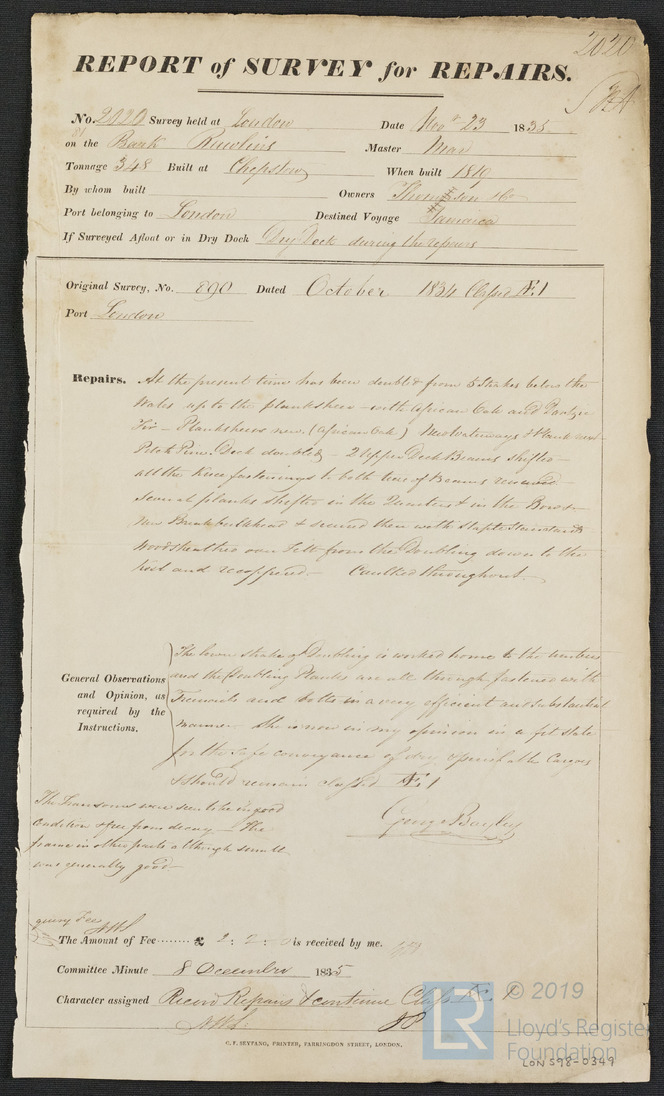 2020
REPORT of SURVEY for REPAIRS.
No. 2020 Survey held at London Date Nov. 23 1835
on the Bark Rawlins Master Mar
Tonnage 348 Built at Chepstow When built 1810
By whom built Owners Thompson &Co
Port belonging to London Destined Voyage Jamaica
If Surveyed Afloat or in Dry Dock Dry Dock during the repairs
Original Survey, No. 890 Dated October 1834 Classed Æ1
Port London
Repairs. At the present time has been doubled from 5 Strakes below the
Wales up to the planksheer - with African Oak and Dantzic
Fir - Planksheers new (African Oak) New Waterways & Plank next
Pitch Pine. Deck doubled - 2 Upper Deck Beams shifted -
all the Knee fastenings to both tier of Beams renewed -
Several planks shifted in the Quarters & in the Bows -
New Breast & secured them with Staple Standards
Woodsheathed over Felt from the Doubling down to the
keel and recoppered - Caulked throughout -
General Observations and Opinion, as required by the Instructions.
The lower strake of Doubling is worked home to the timbers
and the Doubling Planks are all through fastened with
Treenails and bolts in a very efficient and substantial
manner - She is now in my opinion in a fit state
for the safe conveyance of dry & perishable Cargoes
& should remain classed Æ1
The Transoms were seen to be in good
Condition & free from decay - The
frame in other parts although small
was generally good -
George Bayley
query Fee
The Amount of Fee ........ £ 2 : 2 : 0 is received by me.
Committee Minute 8 December 1835
Character assigned Record Repairs & continue Class Æ 1
C. F. SEYFANG, PRINTER, FARRINGDON STREET, LONDON.
LR © 2019
Lloyd's Register
Foundation
LON 598-0349